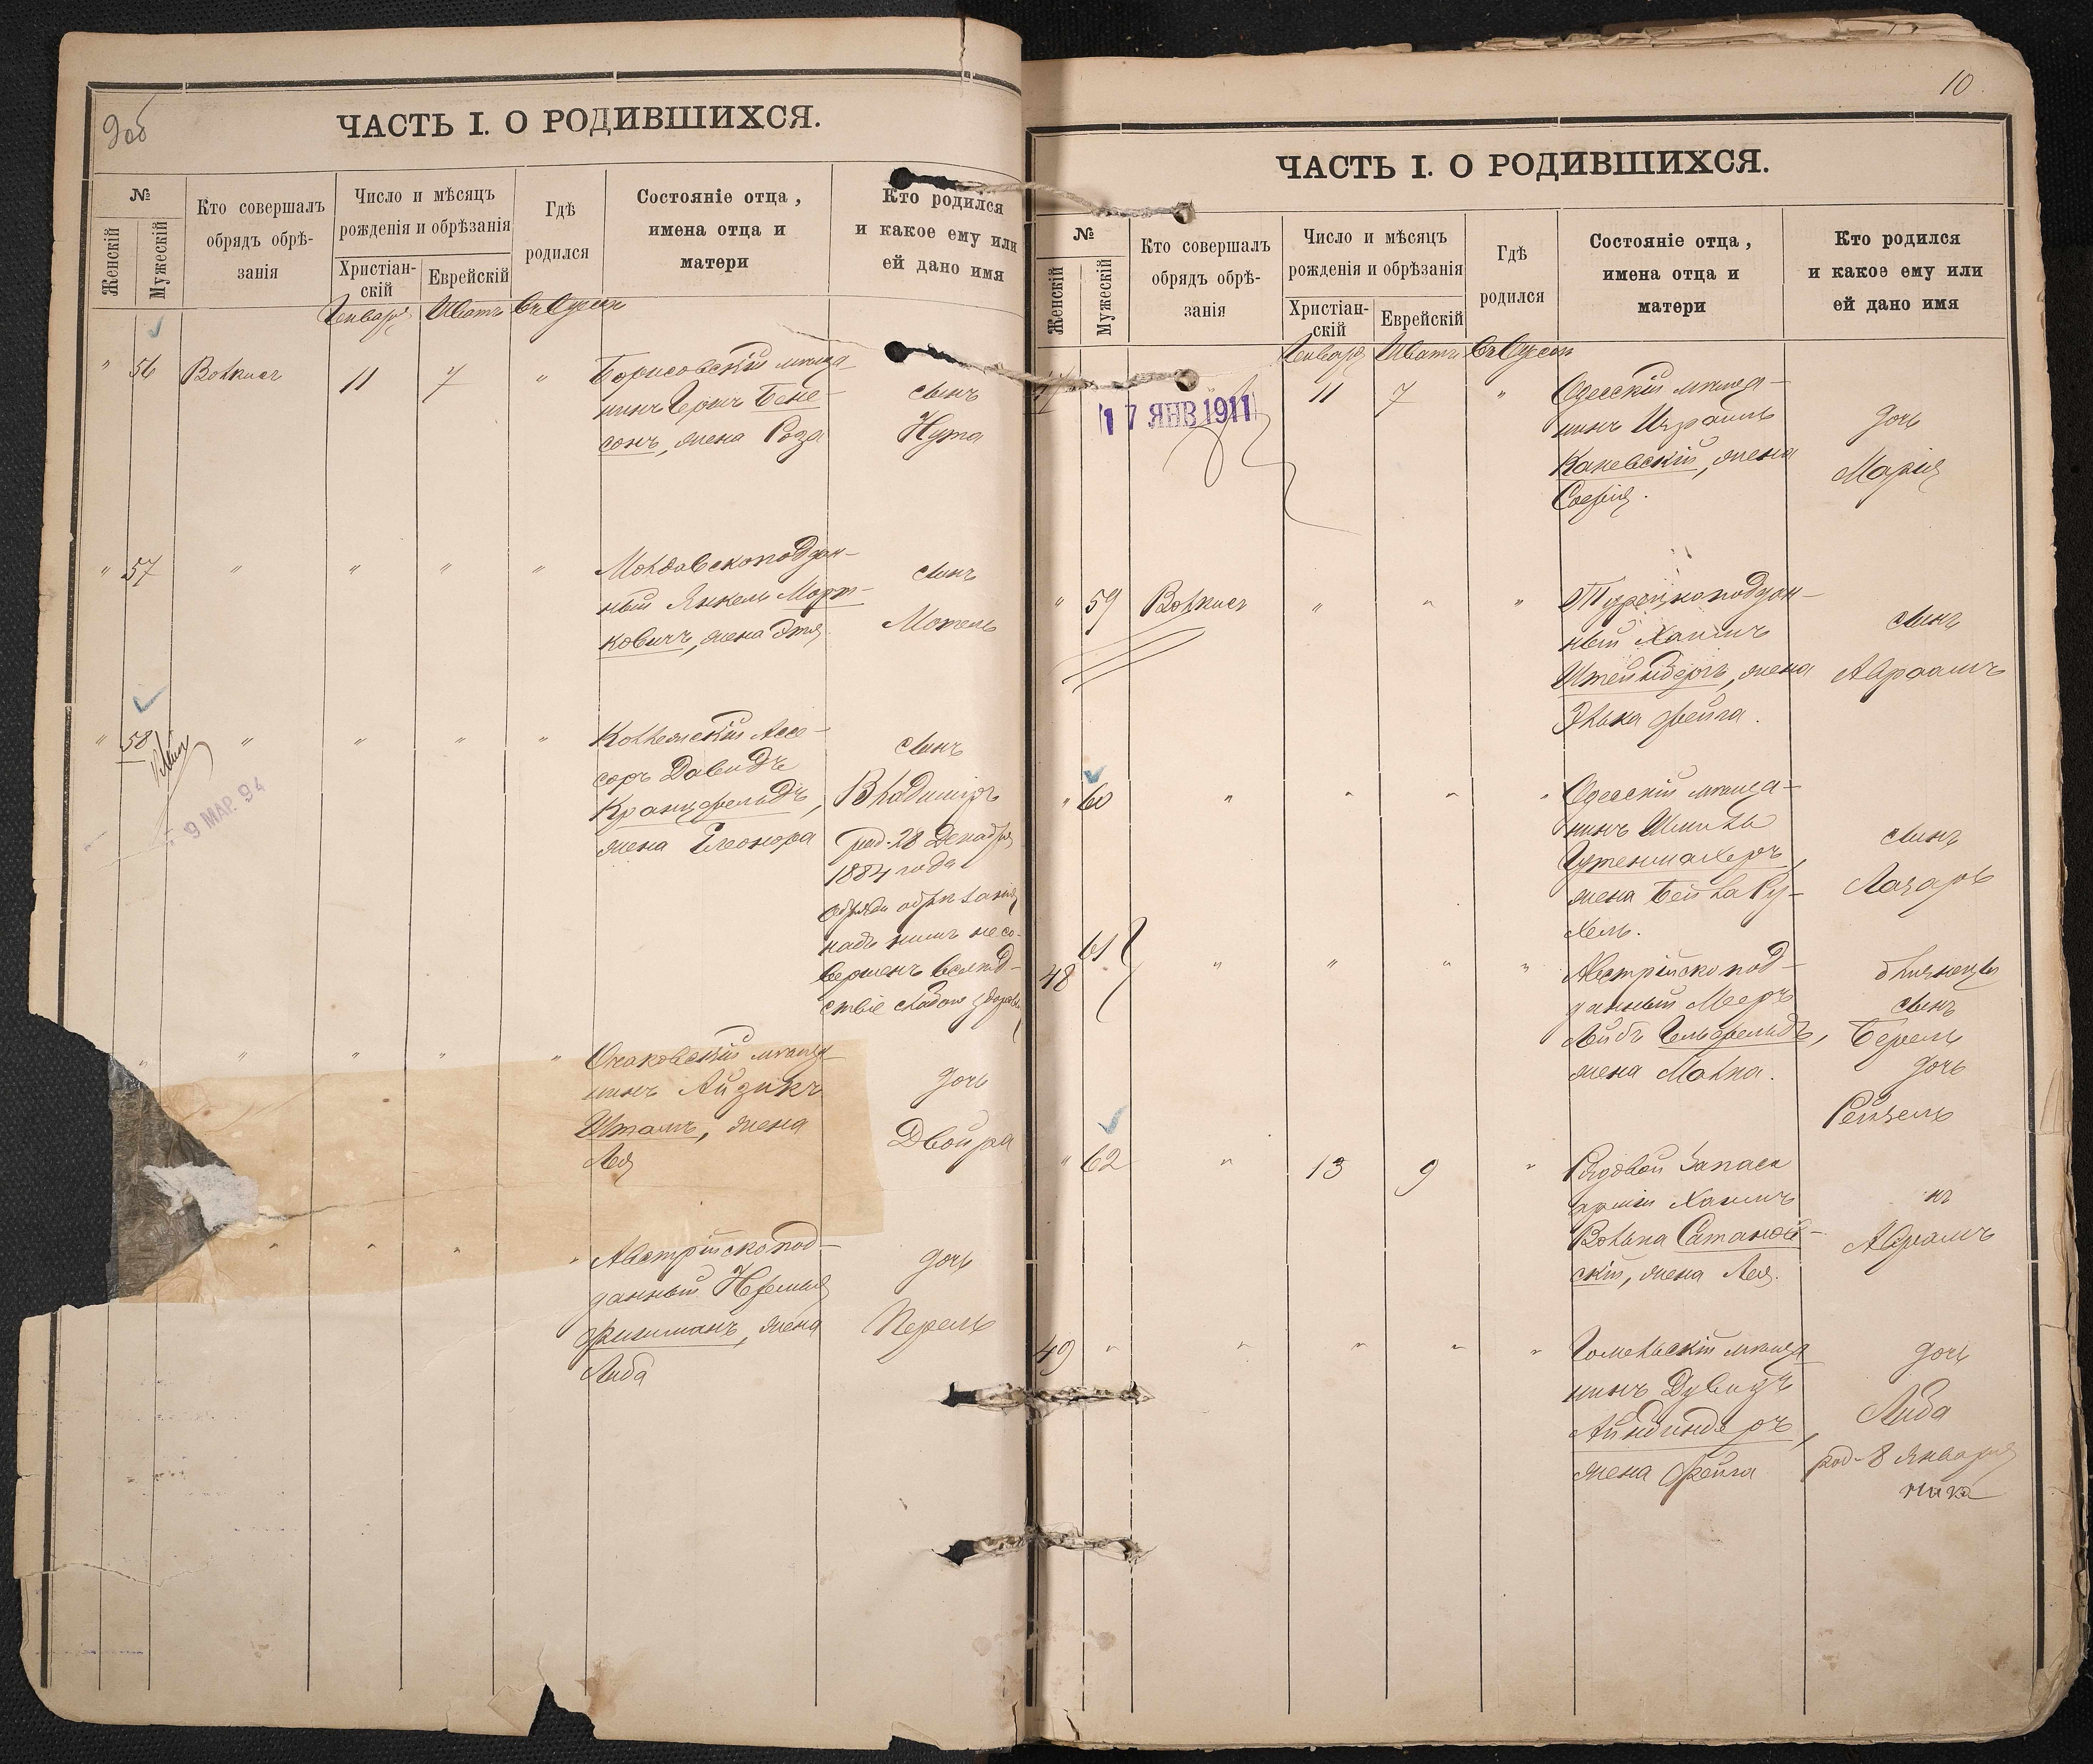 9об
ЧАСТЬ I. О РОДИВШИХСЯ.
№
Женскій
Мужескій
Кто совершалъ
обрядъ обрѣ-
занія
Число и мѣсяцъ
рожденія и обрѣзанія
Христіан-
скій
Еврейскій
Гдѣ
родился
Состояніе отца,
имена отца и
матери
Кто родился
и какое ему или
ей дано имя
Января Шватъ Въ Одессѣ
" 56
11 7 "
Борисовскій мѣща-
нинъ Герш Бене-
сонъ, жена Роза
сынъ
Нута
" 57 " " " "
Молдавскоподдан-
ный Янкель Морт-
ковичъ, жена Этя
сынъ
Мотель
" 58 " " " "
9 МАР. 94
Коллежскій Ассе-
соръ Давидъ
Кранцфельдъ,
жена Елеонора
сынъ
Владиміръ
род. 28 Декабря
1884 года
обрядъ обрѣзанія
надъ нимъ не со-
вершенъ вслѣд-
ствіе слабаго здоровья
" " " " "
Очаковскій мѣща-
нинъ Айзикъ
Штамъ, жена
Лея
дочь
Двойра
" " " "
Австрійскопод-
данный
Фишманъ, жена
Либа
дочь
Перель
10
ЧАСТЬ I. О РОДИВШИХСЯ.
№
Женскій
Мужескій
Кто совершалъ
обрядъ обрѣ-
занія
Число и мѣсяцъ
рожденія и обрѣзанія
Христіан-
скій
Еврейскій
Гдѣ
родился
Состояніе отца,
имена отца и
матери
Кто родился
и какое ему или
ей дано имя
Января Шватъ Въ Одессѣ
47
17 ЯНВ 1911
11 7 "
Одесскій мѣща-
нинъ Израиль
Каневскій, жена
Софія.
дочь
Марія
" 59 " " "
Турецкоподдан-
ный Хаимъ
Штейнбергъ, жена
Элька Фейга.
сынъ
Авраамъ
" 60 " " " "
Одесскій мѣща-
нинъ Шмиль
Гутенмахеръ,
жена Бейла Ру-
хель.
сынъ
Лазарь
61
48 " " " "
Австрійскопод-
данный Мееръ
Лейбъ Гельфельдъ,
жена Малка.
близнецы
сынъ
Берель
дочь
Рейзель
" 62 " 13 9 "
Рядовой запаса
арміи Хаимъ
Волька Сатанов-
скій, жена Лея.
Аврамъ
49 " " " " "
Гомельскій мѣща-
нинъ Дувидъ
Айнбиндеръ,
жена Фейга
дочь
Либа
род. 8 Января